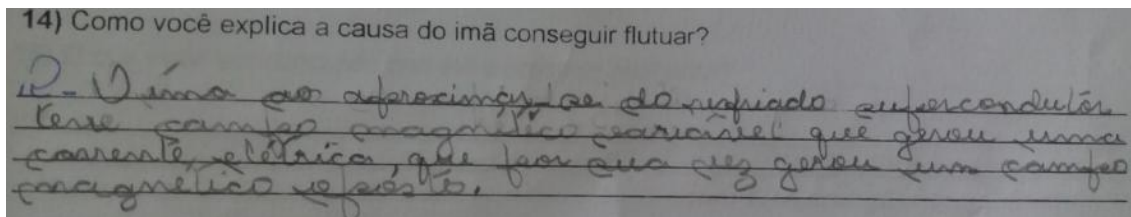 14) Como você explica a causa do imã conseguir flutuar?
R- O ima ao aproximar-se do resfriado supercondutor
teve campo magnético variável que gerou uma
corrente elétrica, que por sua vez gerou um campo
magnético oposto.